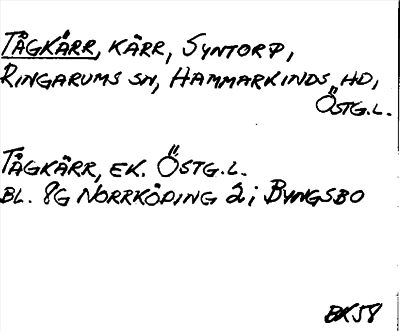 TÅGKÄRR, KÄRR, SYNTORP,
RINGARUMS SN, HAMMARKINDS HD,
ÖSTG.L.
TÅGKÄRR, EK. ÖSTG.L.
BL. 8G NORRKÖPING 2; BYNGSBO